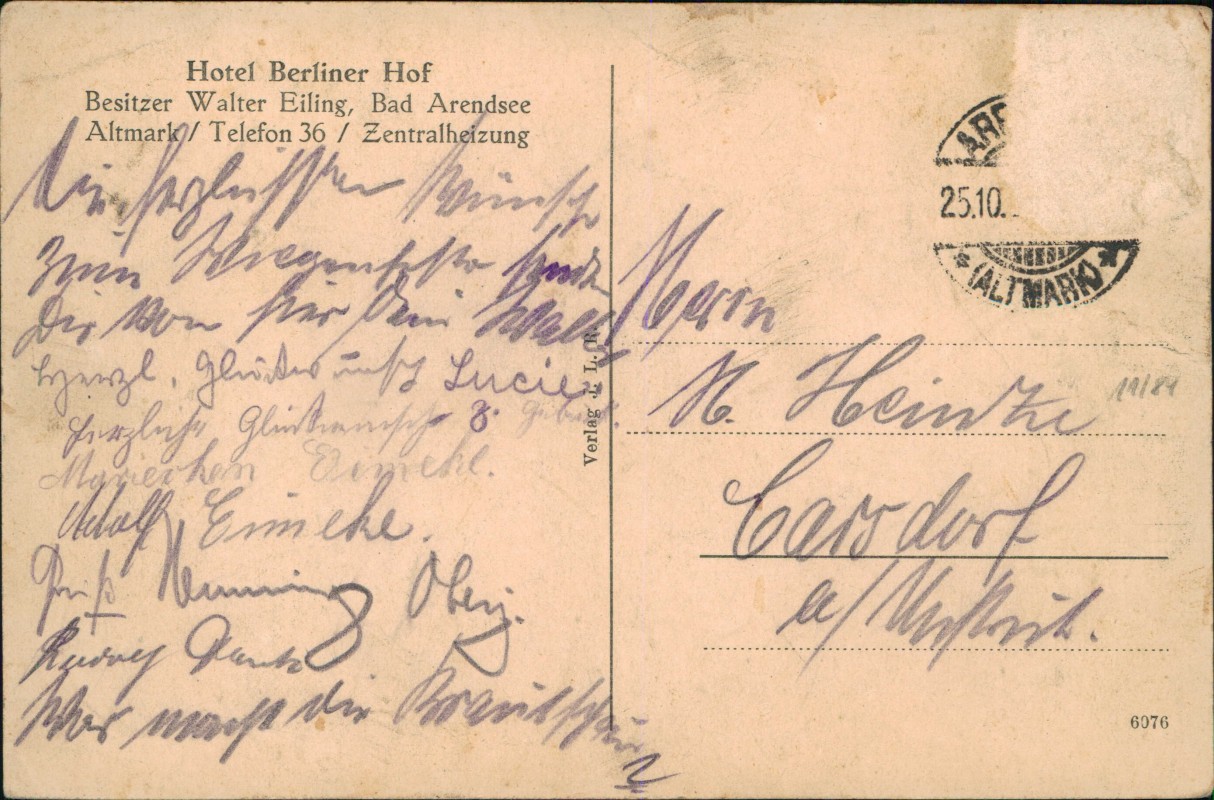 Hotel Berliner Hof
Besitzer Walter Eiling, Bad Arendsee
Altmark / Telefon 36 / Zentralheizung
Die herzlichsten Wünsche
zum Wiegenfeste sendet
Dir von hier Dein
Herzl. Glückwunsch Lucie
Herzliche Glückwünsche z. Geburt.
Mariechen Eimeke.
Adolf Eimeke.
Henning
Rudolf
Was macht die
Verlag J. L. R.
ARE
25.10.
* (ALTMARK) *
Herrn
H. Heintze
Carsdorf
a/Unstrut.
19/84
6076